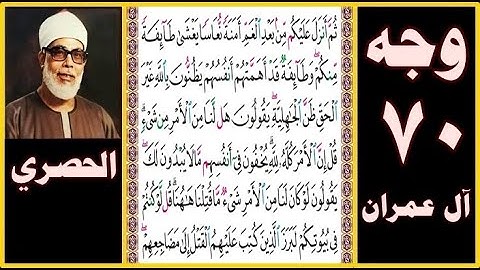 وجه
٧٠
آل عمران
ثُمَّ أَنزَلَ عَلَيْكُم مِّنۢ بَعْدِ ٱلْغَمِّ أَمَنَةً نُّعَاسًا يَغْشَىٰ طَآئِفَةً
مِّنكُمْ ۖ وَطَآئِفَةٌ قَدْ أَهَمَّتْهُمْ أَنفُسُهُمْ يَظُنُّونَ بِٱللَّهِ غَيْرَ
ٱلْحَقِّ ظَنَّ ٱلْجَٰهِلِيَّةِ ۖ يَقُولُونَ هَل لَّنَا مِنَ ٱلْأَمْرِ مِن شَىْءٍ ۗ
قُلْ إِنَّ ٱلْأَمْرَ كُلَّهُۥ لِلَّهِ ۗ يُخْفُونَ فِىٓ أَنفُسِهِم مَّا لَا يُبْدُونَ لَكَ ۖ
يَقُولُونَ لَوْ كَانَ لَنَا مِنَ ٱلْأَمْرِ شَىْءٌ مَّا قُتِلْنَا هَٰهُنَا ۗ قُل لَّوْ كُنتُمْ
فِى بُيُوتِكُمْ لَبَرَزَ ٱلَّذِينَ كُتِبَ عَلَيْهِمُ ٱلْقَتْلُ إِلَىٰ مَضَاجِعِهِمْ ۖ
الحصري